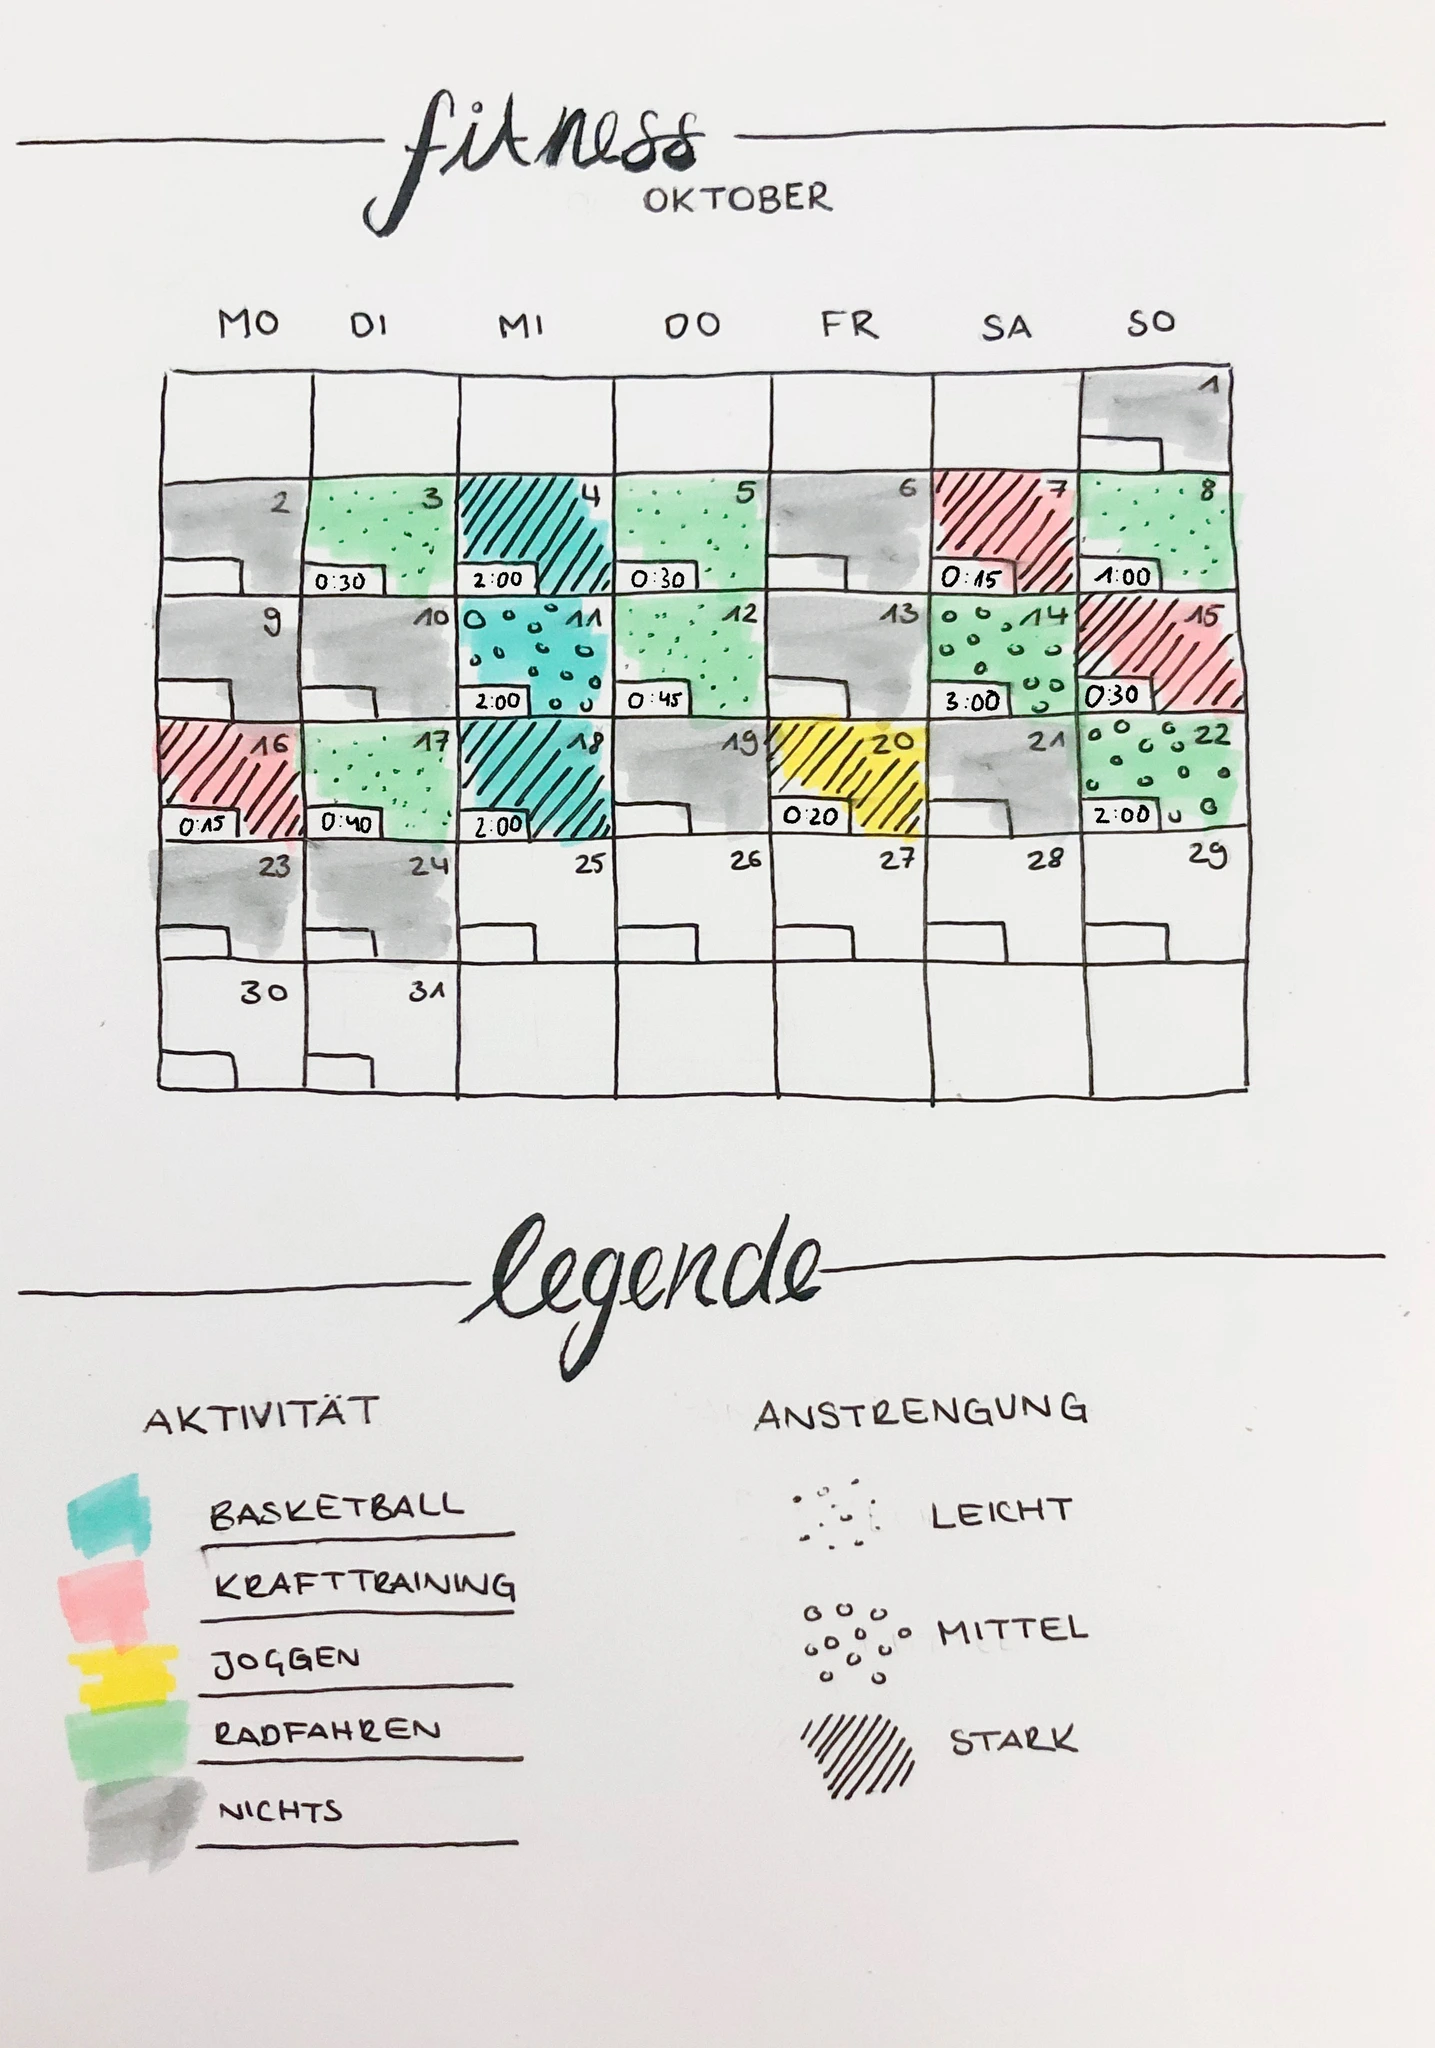 fitness
OKTOBER
MO DI MI DO FR SA SO
1
2 3 4 5 6 7 8
0:30 2:00 0:30 0:15 1:00
9 10 11 12 13 14 15
2:00 0:45 3:00 0:30
16 17 18 19 20 21 22
0:15 0:40 2:00 0:20 2:00
23 24 25 26 27 28 29
30 31
legende
AKTIVITÄT
BASKETBALL
KRAFTTRAINING
JOGGEN
RADFAHREN
NICHTS
ANSTRENGUNG
LEICHT
MITTEL
STARK